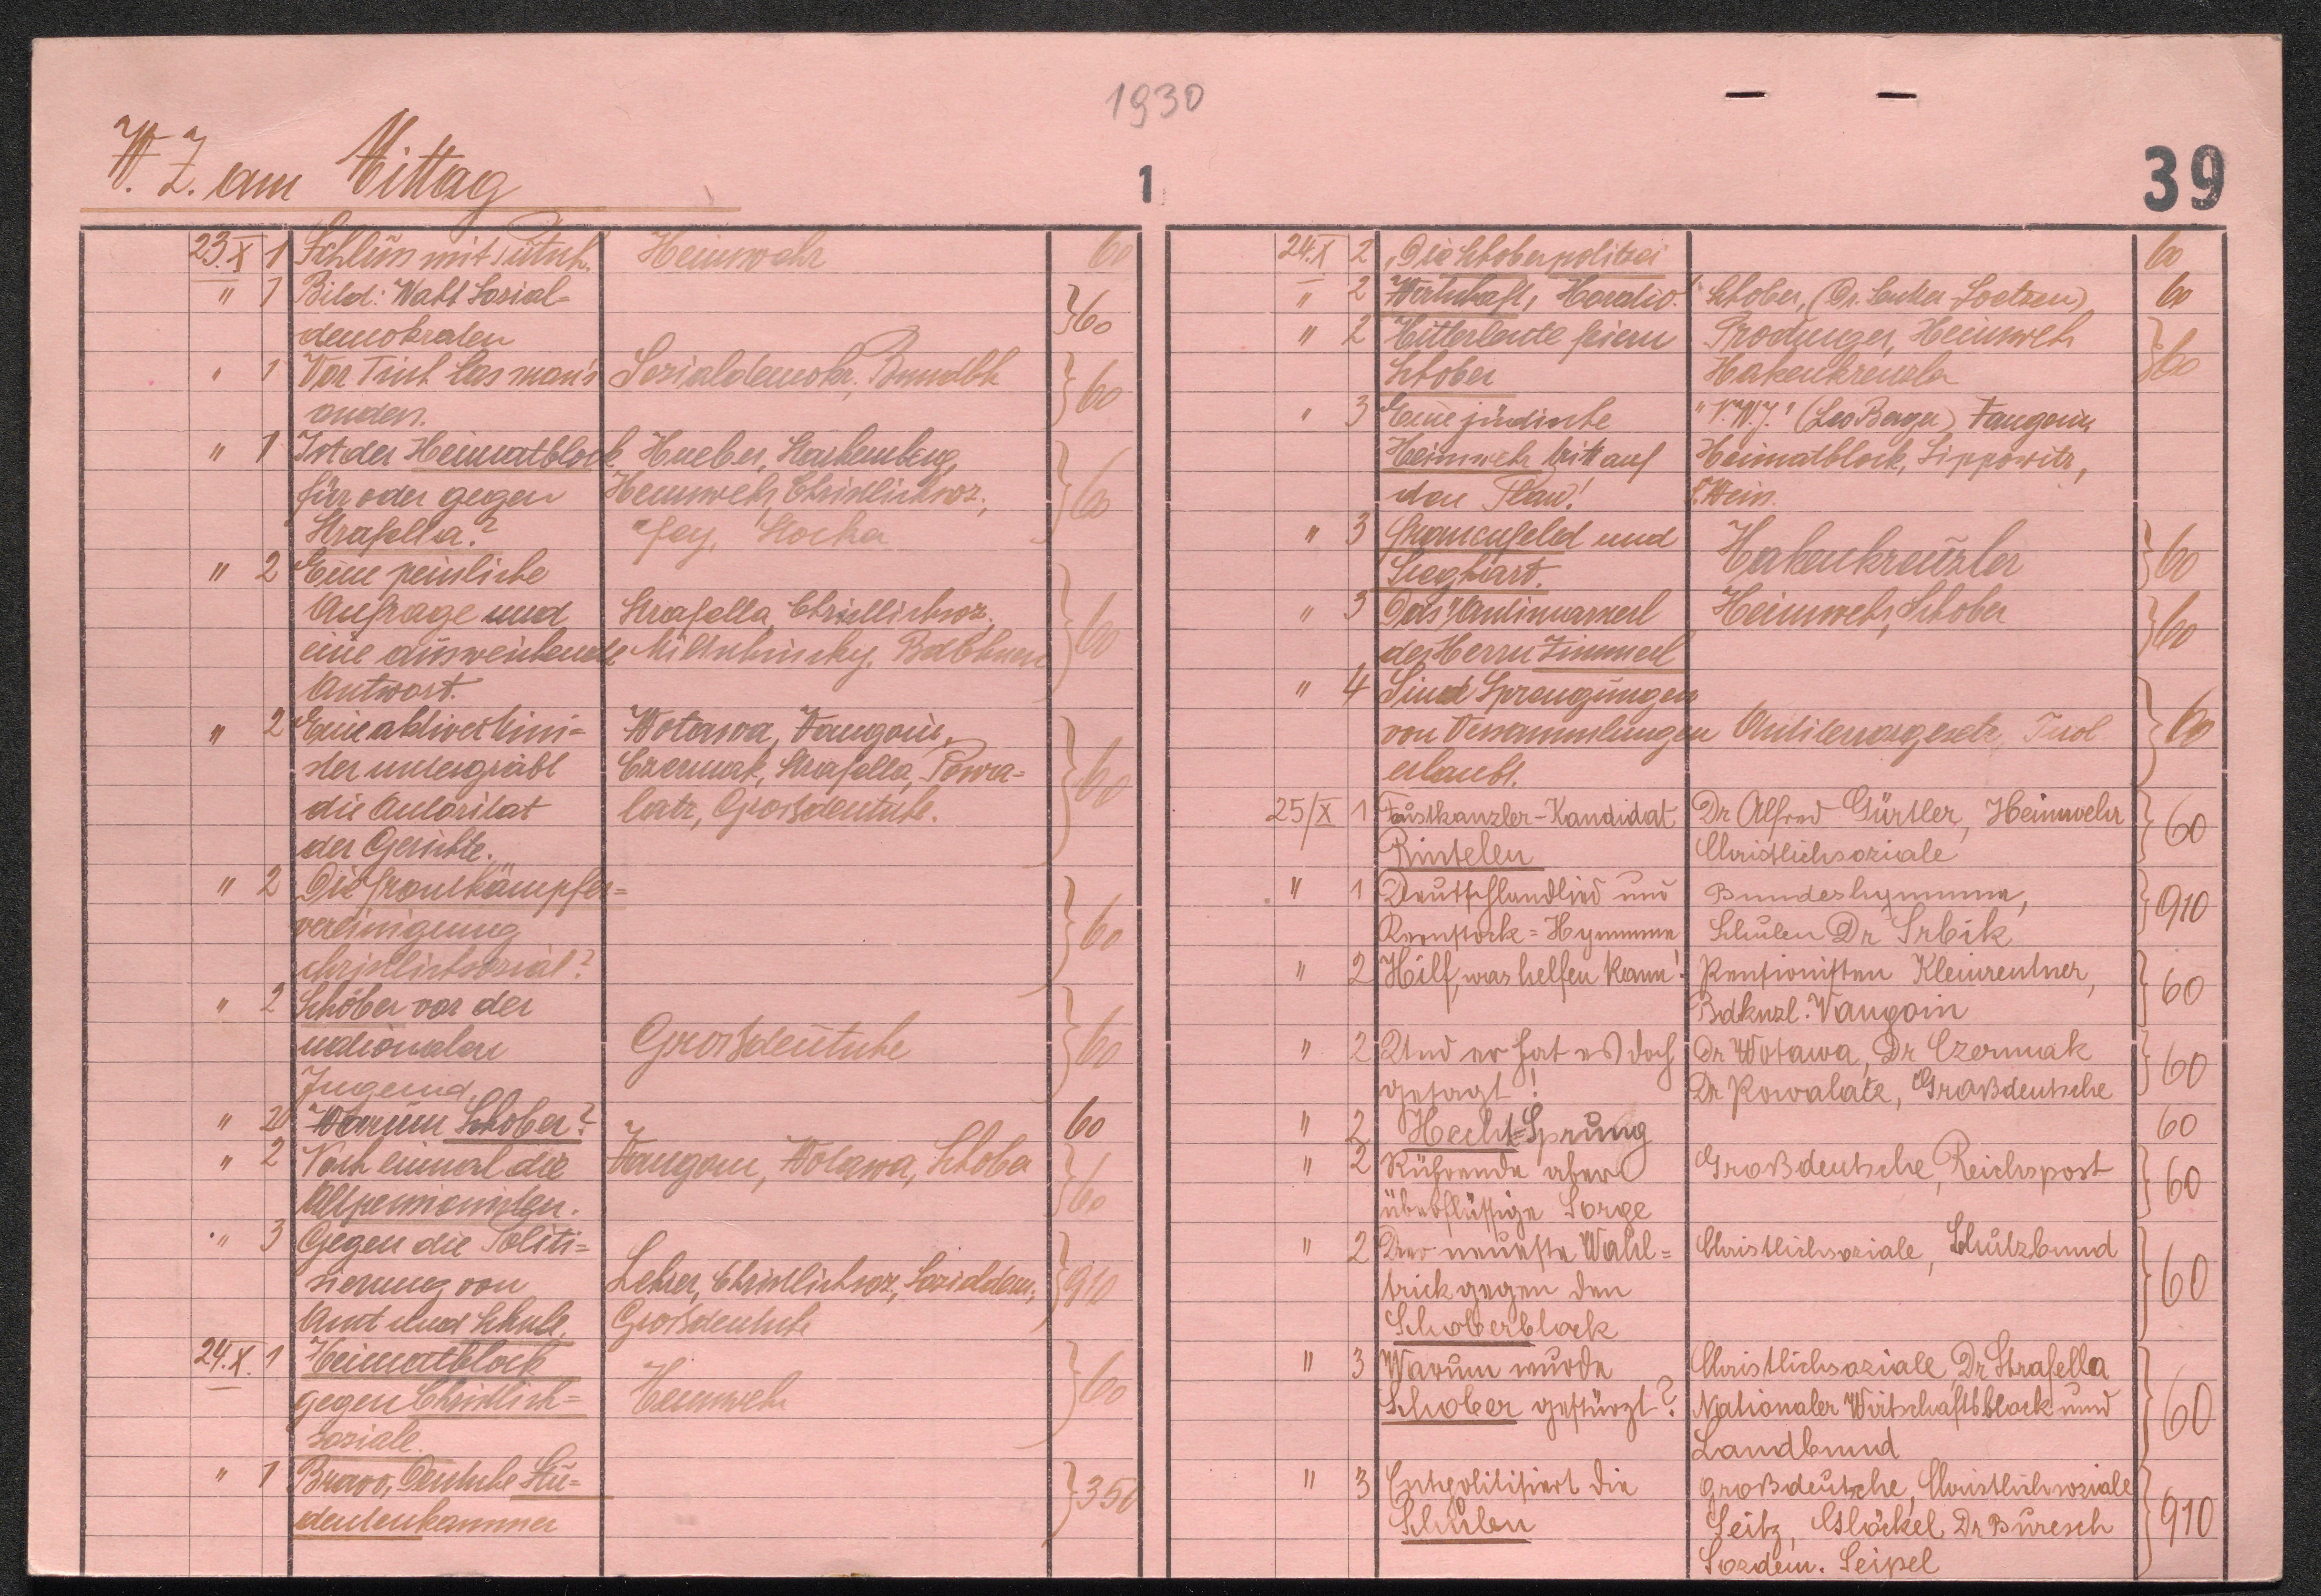 1930
W. Z. am Mittag
1
39
23.X 1 Schluss mit Putsch. Heimwehr 60
" 1 Bild: Wahlt Sozial-
demokraten } 60
" 1 Vor Tisch las man's Sozialdemokr., Bundbh
anders. } 60
" 1 Ist der Heimatblock Hueber, Starhemberg,
für oder gegen Heimwehr, Christlichsoz., } 60
Strafella? Fey, Stocker
" 2 Eine peinliche
Anfrage und Strafella, Christlichsoz.
eine ausweichende Miltschinsky, Bdbhnen } 60
Antwort.
" 2 Eine aktiver Mini- Wotawa, Vaugoin,
ster untergräbt Czermak, Strafella, Powa-
die Autorität latz, Grossdeutsche. } 60
der Gerichte.
" 2 Die Frontkämpfer-
vereinigung } 60
christlichsozial?
" 2 Schober vor der
nationalen Grossdeutsche } 60
Jugend.
" 2 Warum Schober? 60
" 2 Noch einmal die Vaugoin, Wotawa, Schober
Altpensionisten. } 60
" 3 Gegen die Politi-
sierung von Lehrer, Christlichsoz., Sozialdem., } 910
Amt und Schule. Grossdeutsche
24.X. 1 Heimatblock
gegen Christlich- Heimwehr } 60
soziale.
" 1 Bravo, Deutsche Stu-
dentenkammer } 350
24.X 2 "Die Schoberpolizei 60
" 2 Wirtschaft, Horatio." Schober, (Dr. 60
" 2 Hitlerleute feiern Prodinger, Heimwehr
Schober Hakenkreuzler } 60
" 3 Eine jüdische "N.W.J." (Leo Berger) Vaugoin
Heimwehr tritt auf Heimatblock, Lippowitz,
den Plan! Wein.
" 3 Frauenfeld und Hakenkreuzler } 60
Sieghart.
" 3 Das Antimarxerl Heimwehr, Schober
des Herrn Zimmerl } 60
" 4 Sind Sprengungen
von Versammlungen Antiterrorgesetz, Tirol } 60
erlaubt.
25/X 1 Faustkanzler-Kandidat Dr Alfred Gürtler, Heimwehr } 60
Rintelen Christlichsoziale
" 1 Deutschlandlied und Bundeshymne, } 910
Kernstock-Hymne Schulen Dr Srbik
" 2 Hilf, was helfen kann! Pensionisten Kleinrentner, } 60
Bdknzl. Vaugoin
" 2 Und er hat es doch Dr Wotawa, Dr Czermak } 60
gesagt! Dr Kowalatz, Großdeutsche
" 2 Hecht-Sprung 60
" 2 Rührende aber Großdeutsche, Reichspost } 60
überflüssige Sorge
" 2 Der neueste Wahl- Christlichsoziale, Schutzbund
trick gegen den } 60
Schoberblock
" 3 Warum wurde Christlichsoziale, Dr Strafella
Schober gestürzt? Nationaler Wirtschaftsblock und } 60
Landbund
" 3 Entpolitisiert die Großdeutsche, Christlichsoziale
Schulen Seitz, Glöckel, Dr Buresch } 910
Sozdem. Seipel